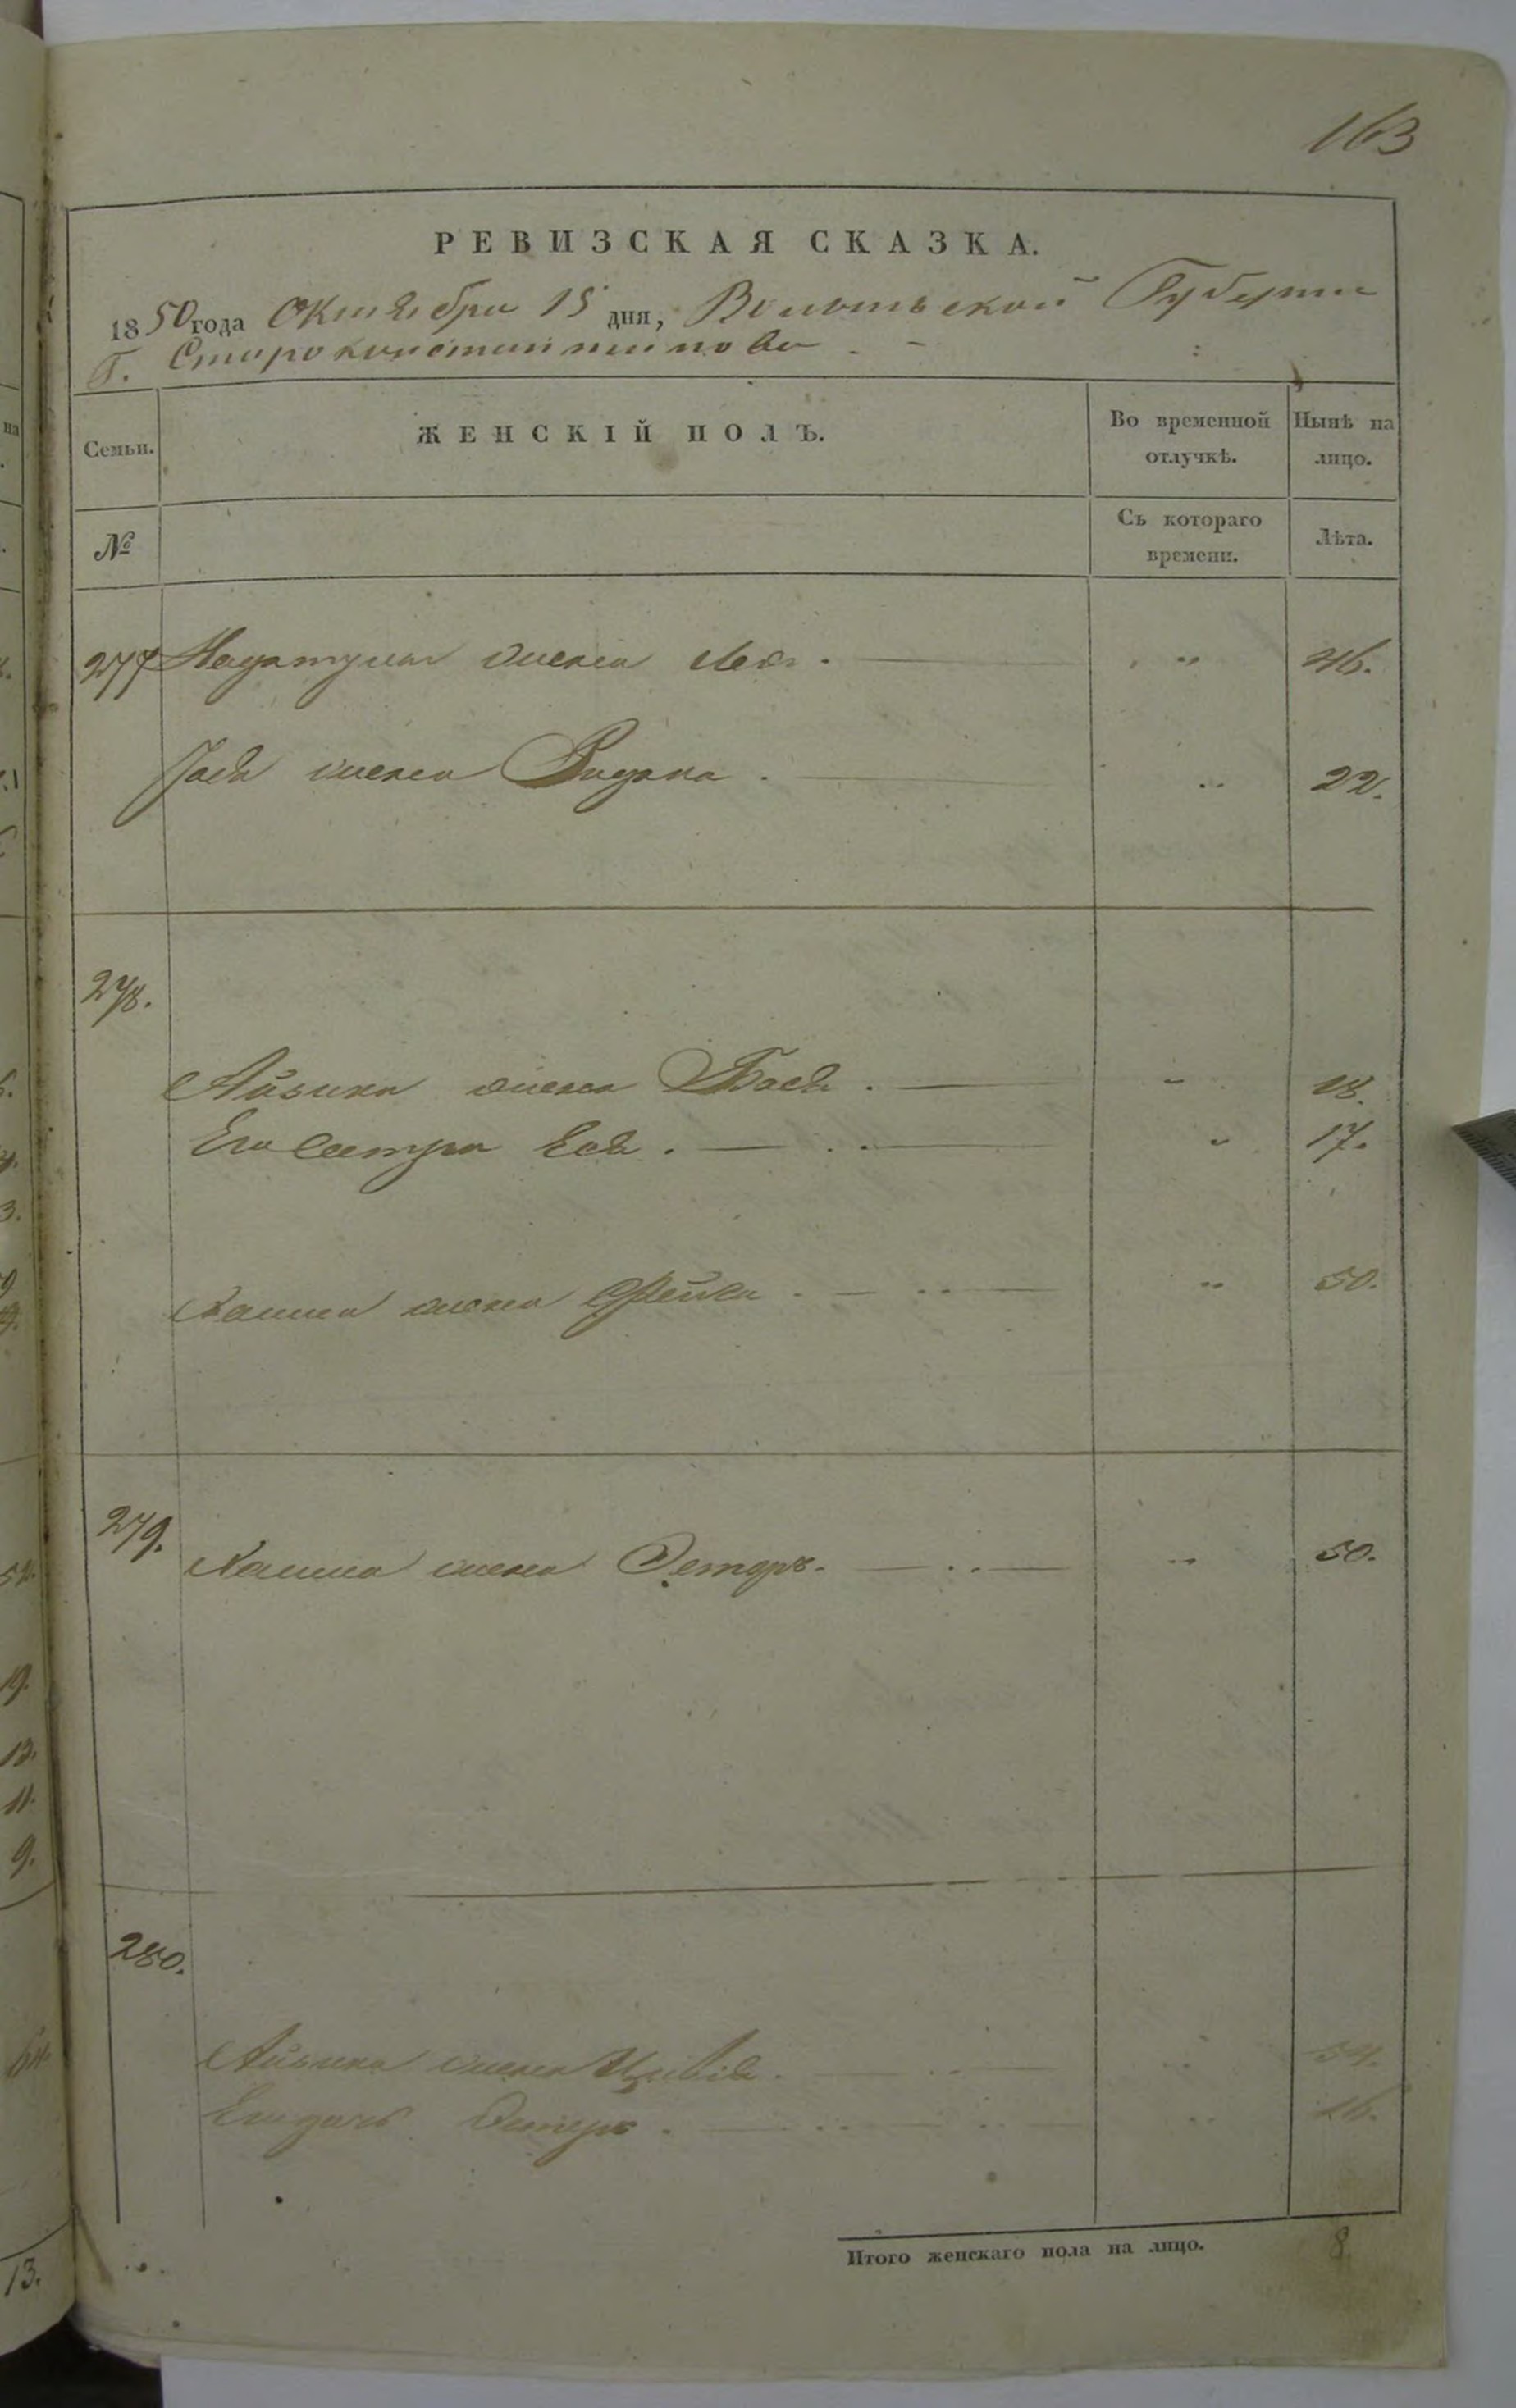 163
РЕВИЗСКАЯ СКАЗКА.
1850 года Октября 15 дня, Волынской Губернии
Г. Староконстантинова
Семьи.
ЖЕНСКІЙ ПОЛЪ.
Во временной отлучкѣ.
Нынѣ на лицо.
№
Съ котораго времени.
Лѣта.
277 жена Лея. 46.
жена 22.
278.
Айзика жена Бася. 18.
Его Сестра Еся. 17.
жена Фейга 50.
279. жена Эстеръ. 50.
280.
Айзика жена Цивія. 54.
Его дочь Эстеръ. 16.
Итого женскаго пола на лицо. 8